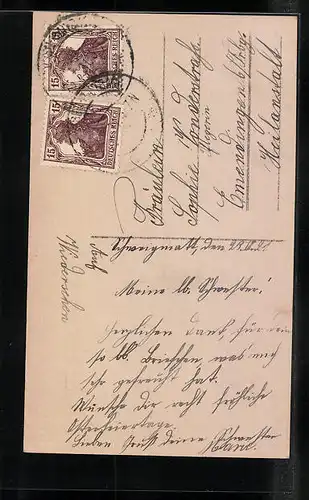 15
DEUTSCHES REICH
15
DEUTSCHES REICH
Fräulein
Sophie
Pflegerin
Emmendingen b/Frbg.
Heilanstalt
Schweigmatt, den
Meine lb. Schwester!
Herzlichen Dank für dein
so lb. Briefchen, was mich
sehr gefreut hat.
Wünsche dir recht fröhliche
Osterfeiertage.
Lieben Gruß deine Schwester
Auf
Wiedersehen